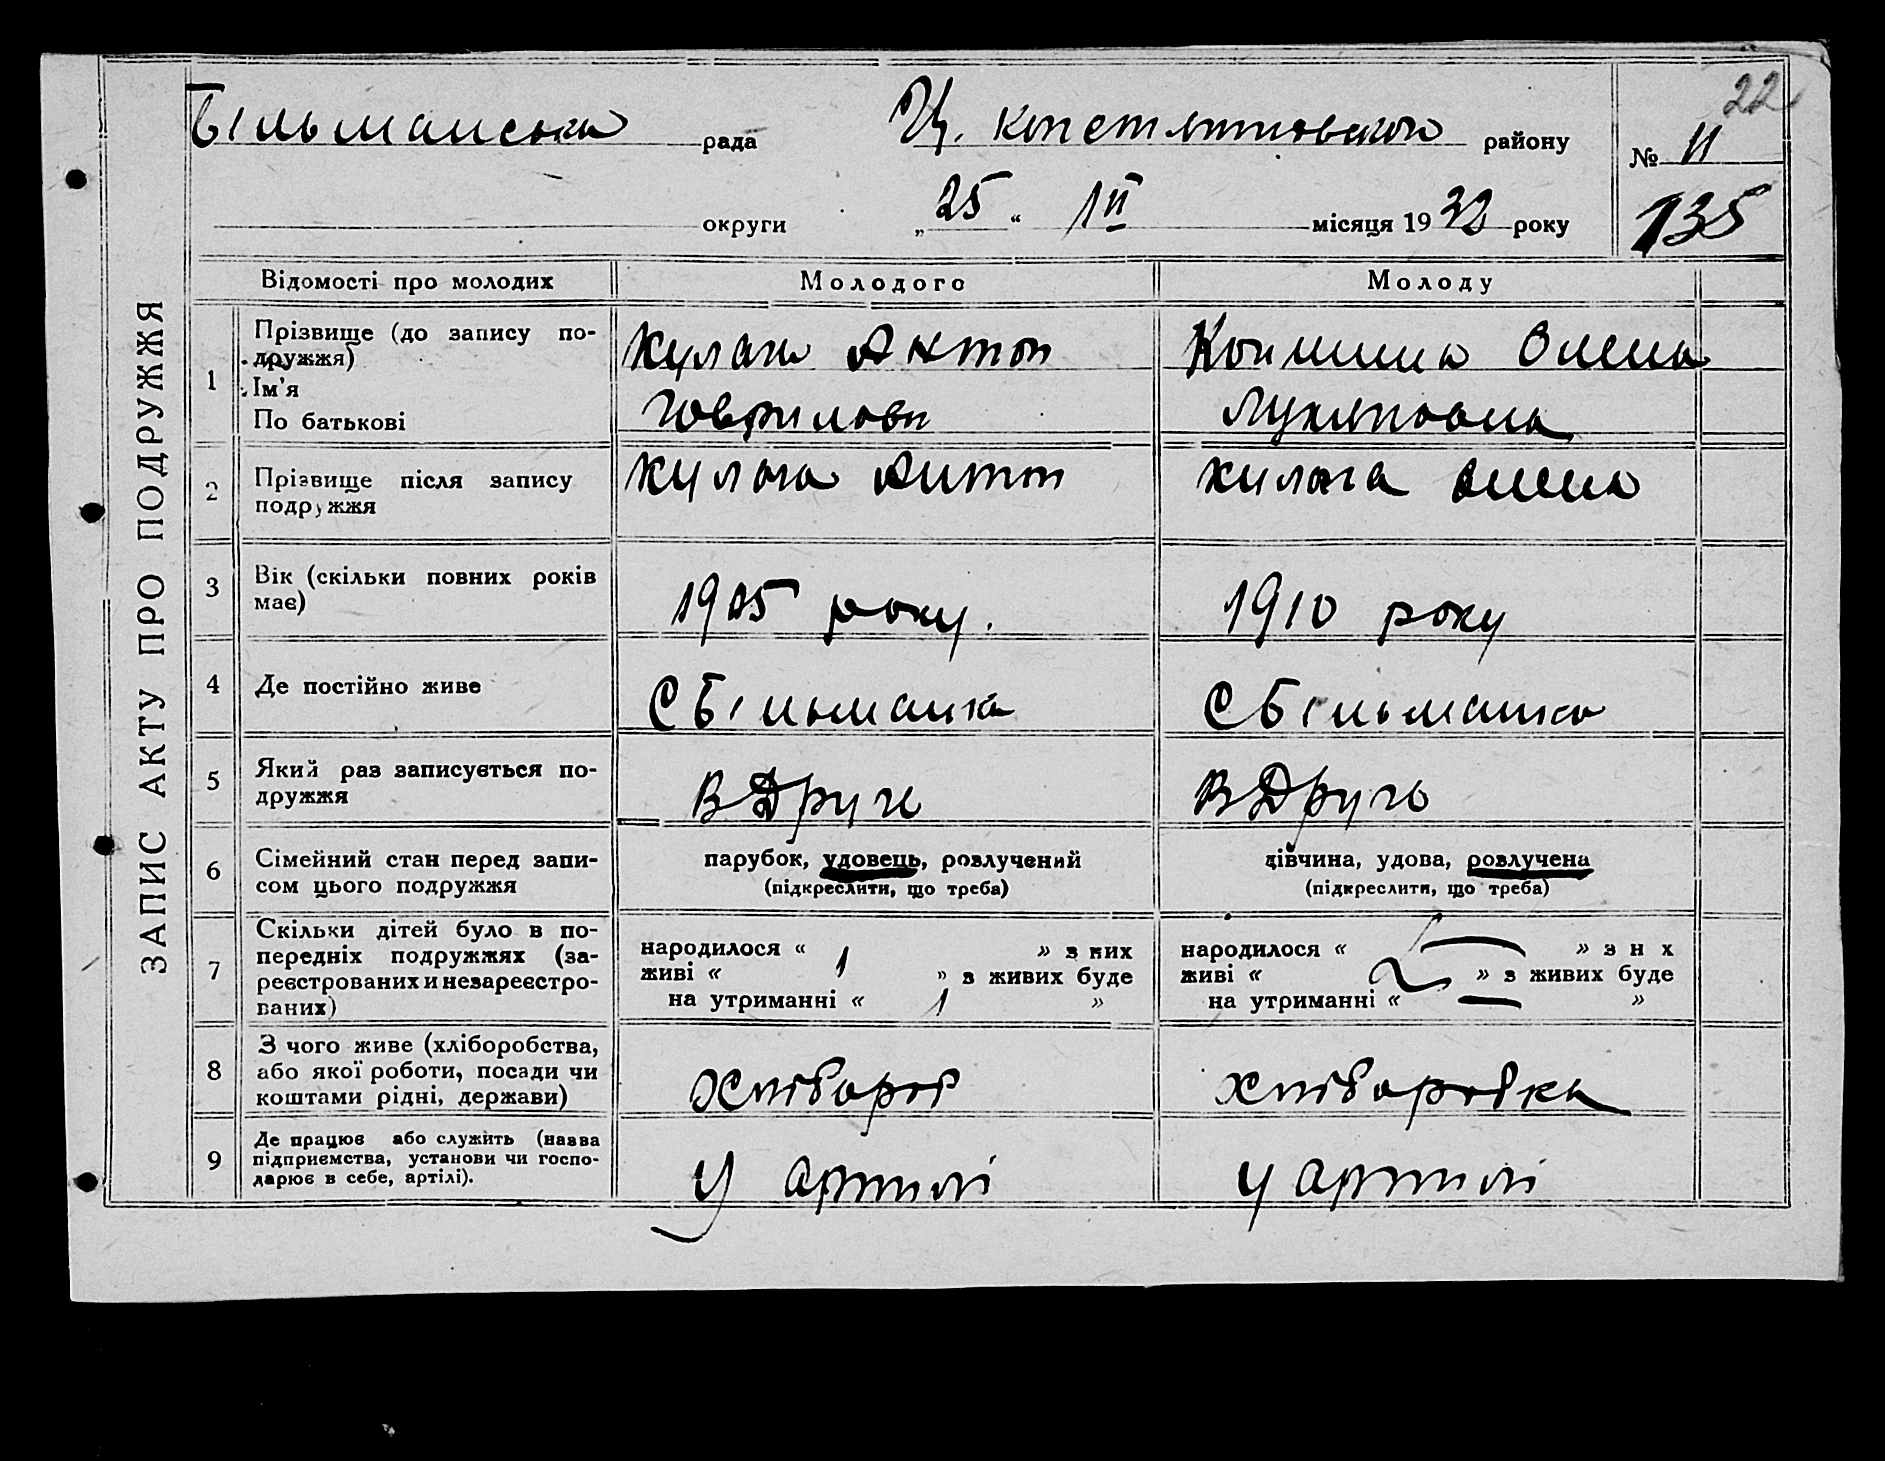 22
Більманська рада Ц. Констянтиновской району № 11
округи „25“ III місяця 1932 року 135
ЗАПИС АКТУ ПРО ПОДРУЖЖЯ
Відомості про молодих Молодого Молоду
1 Прізвище (до запису по-
дружжя)
Ім'я
По батькові
Кулага Антон
Гаврилови
Олена
Лукяновна
2 Прізвище після запису
подружжя
Кулага Антон
Кулага Олена
3 Вік (скільки повних років
має)
1905 року.
1910 року
4 Де постійно живе
С Більманка
С Більманка
5 Який раз записується по-
дружжя
В Друге
В Друге
6 Сімейний стан перед запи-
сом цього подружжя
парубок, удовець, розлучений
(підкреслити, що треба)
дівчина, удова, розлучена
(підкреслити, що треба)
7 Скільки дітей було в по-
передніх подружжях (за-
реєстрованих и незареєстро-
ваних)
народилося « » з них
живі « 1 » з живих буде
на утриманні « 1 »
народилося « — » з н х
живі « » з живих буде
на утриманні « — »
8 З чого живе (хліборобства,
або якої роботи, посади чи
коштами рідні, держави)
Хлібороб
хлібаробка
9 Де працює або служить (назва
підприємства, установи чи госпо-
дарює в себе, артілі).
У артилі
У артилі